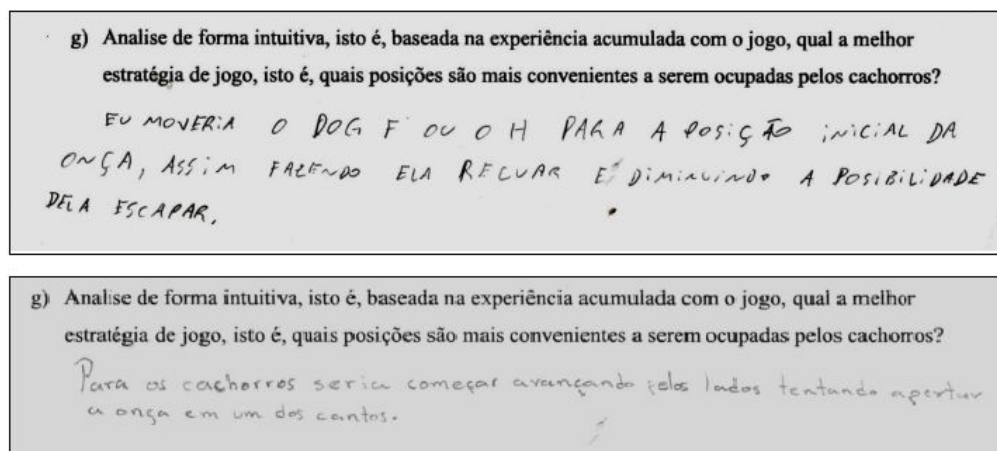 g) Analise de forma intuitiva, isto é, baseada na experiência acumulada com o jogo, qual a melhor
estratégia de jogo, isto é, quais posições são mais convenientes a serem ocupadas pelos cachorros?
EU MOVERIA O DOG F OU O H PARA A POSIÇÃO INICIAL DA
ONÇA, ASSIM FAZENDO ELA RECUAR E DIMINUINDO A POSIBILIDADE
DELA ESCAPAR.
g) Analise de forma intuitiva, isto é, baseada na experiência acumulada com o jogo, qual a melhor
estratégia de jogo, isto é, quais posições são mais convenientes a serem ocupadas pelos cachorros?
Para os cachorros seria começar avançando pelos lados tentando apertar
a onça em um dos cantos.